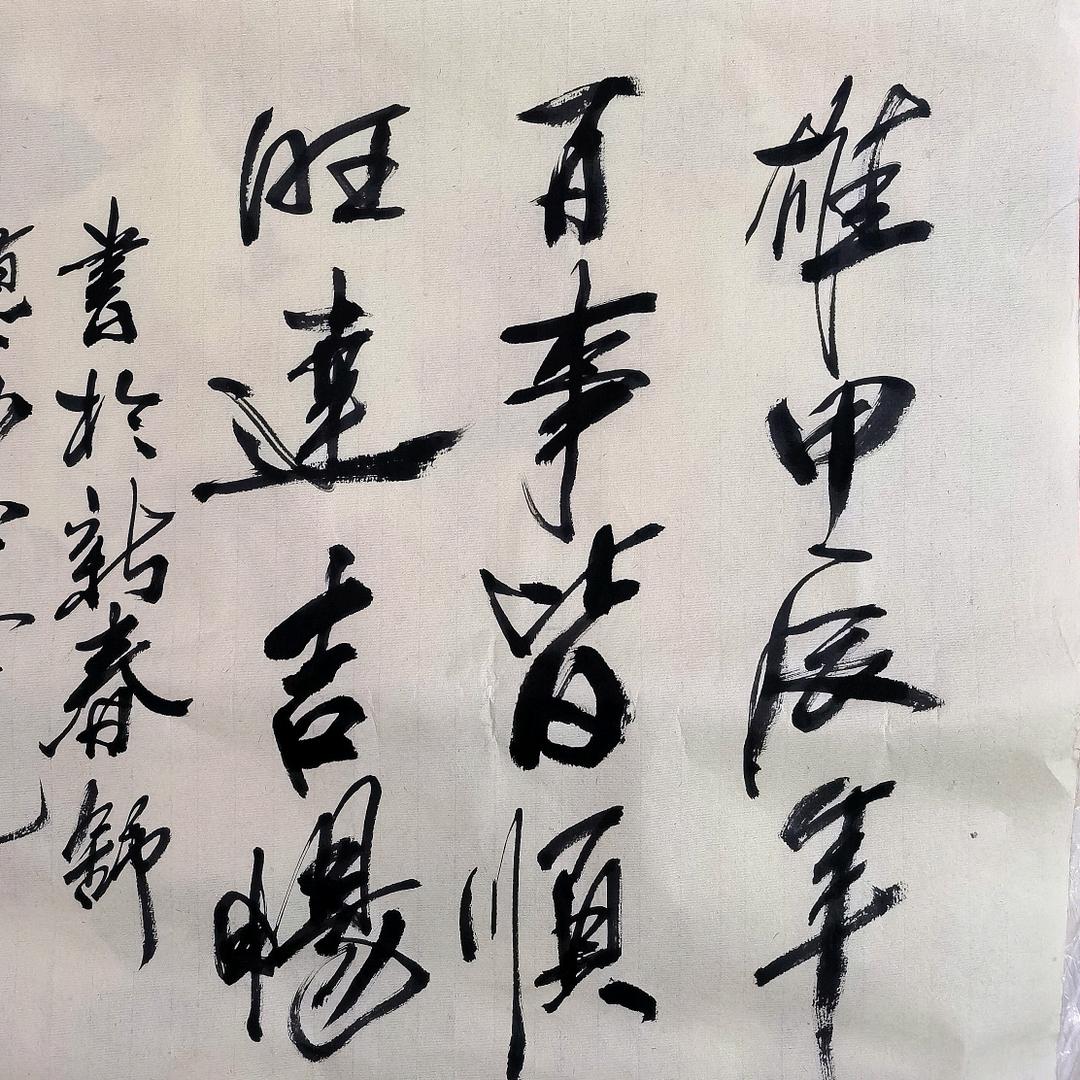 雄甲辰年
百事皆順
旺達吉暢
書於新春錦